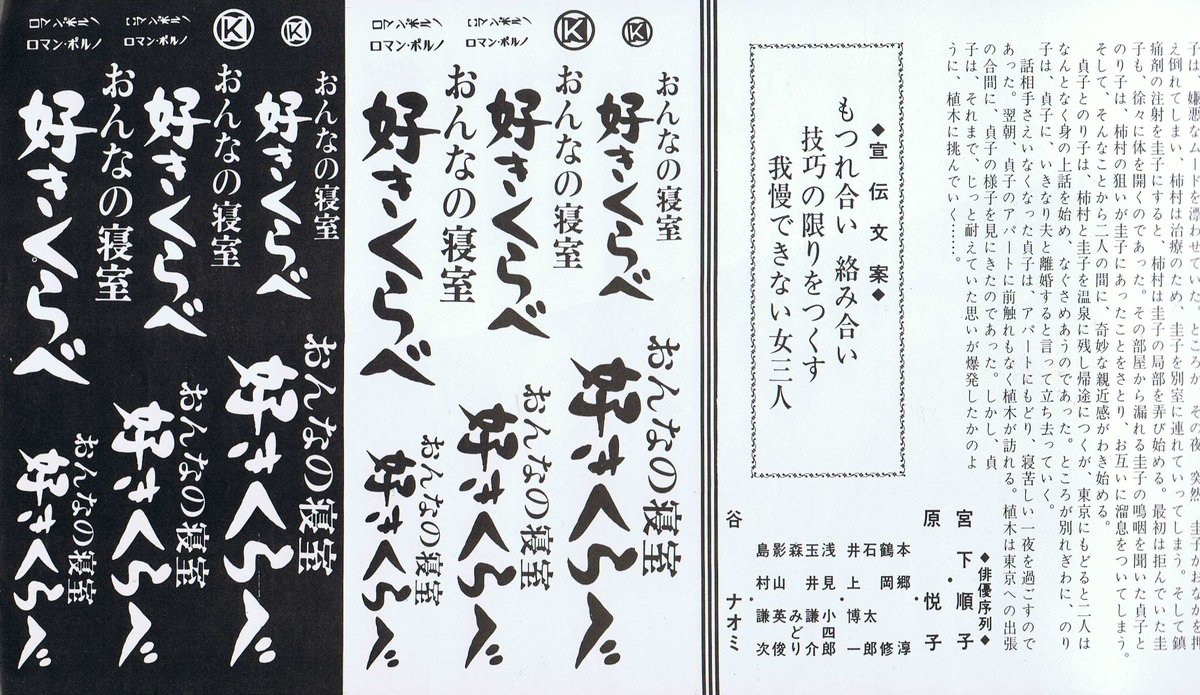 子は、嫌悪なムードを漂わせていた。ところが、その夜、突然、圭子がお
え倒れてしまい、柿村は治療のため、圭子を別室に連れていってしまう。そして鎮
痛剤の注射を圭子にすると、柿村は圭子の局部を弄び始める。最初は拒んでいた圭
子も、徐々に体を開くのであった。その部屋から漏れる圭子の嗚咽を聞いた貞子と
のり子は、柿村の狙いが圭子にあったことをさとり、お互いに溜息をついてしまう。
そして、そんなことから二人の間に、奇妙な親近感がわき始める。
貞子とのり子は、柿村と圭子を温泉に残し帰途につくが、東京にもどると二人は
なんとなく身の上話を始め、なぐさめあうのであった。ところが別れぎわに、のり
子は、貞子に、いきなり夫と離婚すると言って立ち去っていく。
話相手さえいなくなった貞子は、アパートにもどり、寝苦しい一夜を過ごすので
あった。翌朝、貞子のアパートに前触れもなく植木が訪れる。植木は東京への出張
の合間に、貞子の様子を見にきたのであった。しかし、貞
子は、それまで、じっと耐えていた思いが爆発したかのよ
うに、植木に挑んでいく……。
◆宣伝文案◆
もつれ合い 絡み合い
技巧の限りをつくす
我慢できない女三人
◆俳優序列◆
宮下順子
原悦子
本郷淳
鶴岡修
石太郎
井上博一
浅見小四郎
玉井謙介
森みどり
影山英俊
島村謙次
谷ナオミ
K
K
ロマンポルノ
ロマン・ポルノ
ロマンポルノ
ロマン・ポルノ
おんなの寝室
好きくらべ
おんなの寝室
好きくらべ
おんなの寝室
好きくらべ
おんなの寝室
好きくらべ
おんなの寝室
好きくらべ
おんなの寝室
好きくらべ
K
K
ロマンポルノ
ロマン・ポルノ
ロマンポルノ
ロマン・ポルノ
おんなの寝室
好きくらべ
おんなの寝室
好きくらべ
おんなの寝室
好きくらべ
おんなの寝室
好きくらべ
おんなの寝室
好きくらべ
おんなの寝室
好きくらべ